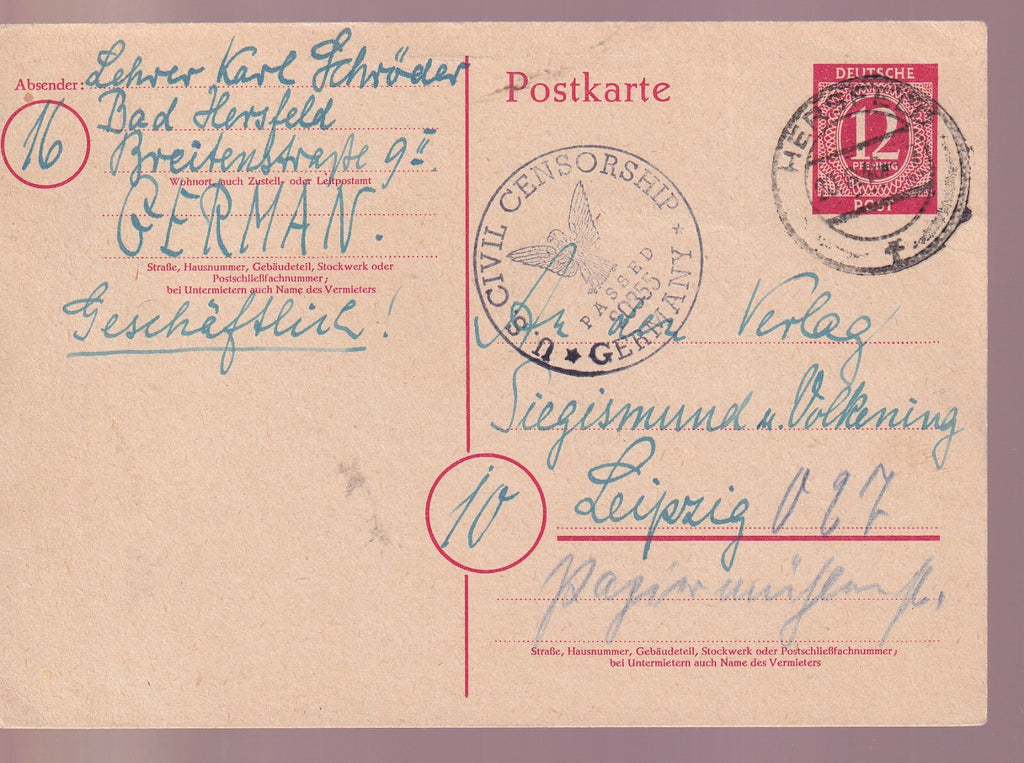 Absender: Lehrer Karl Schröder
16
Bad Hersfeld
Breitenstraße 9 II
Wohnort, auch Zustell- oder Leitpostamt
GERMAN.
Straße, Hausnummer, Gebäudeteil, Stockwerk oder
Postschließfachnummer;
bei Untermietern auch Name des Vermieters
Geschäftlich!
Postkarte
DEUTSCHE
12
PFENNIG
POST
HERSFELD
U.S. CIVIL CENSORSHIP ★ GERMANY ★
PASSED
An den Verlag
Siegismund u. Volkening
10
Leipzig O 27
Papiermühlenstr.
Straße, Hausnummer, Gebäudeteil, Stockwerk oder Postschließfachnummer;
bei Untermietern auch Name des Vermieters